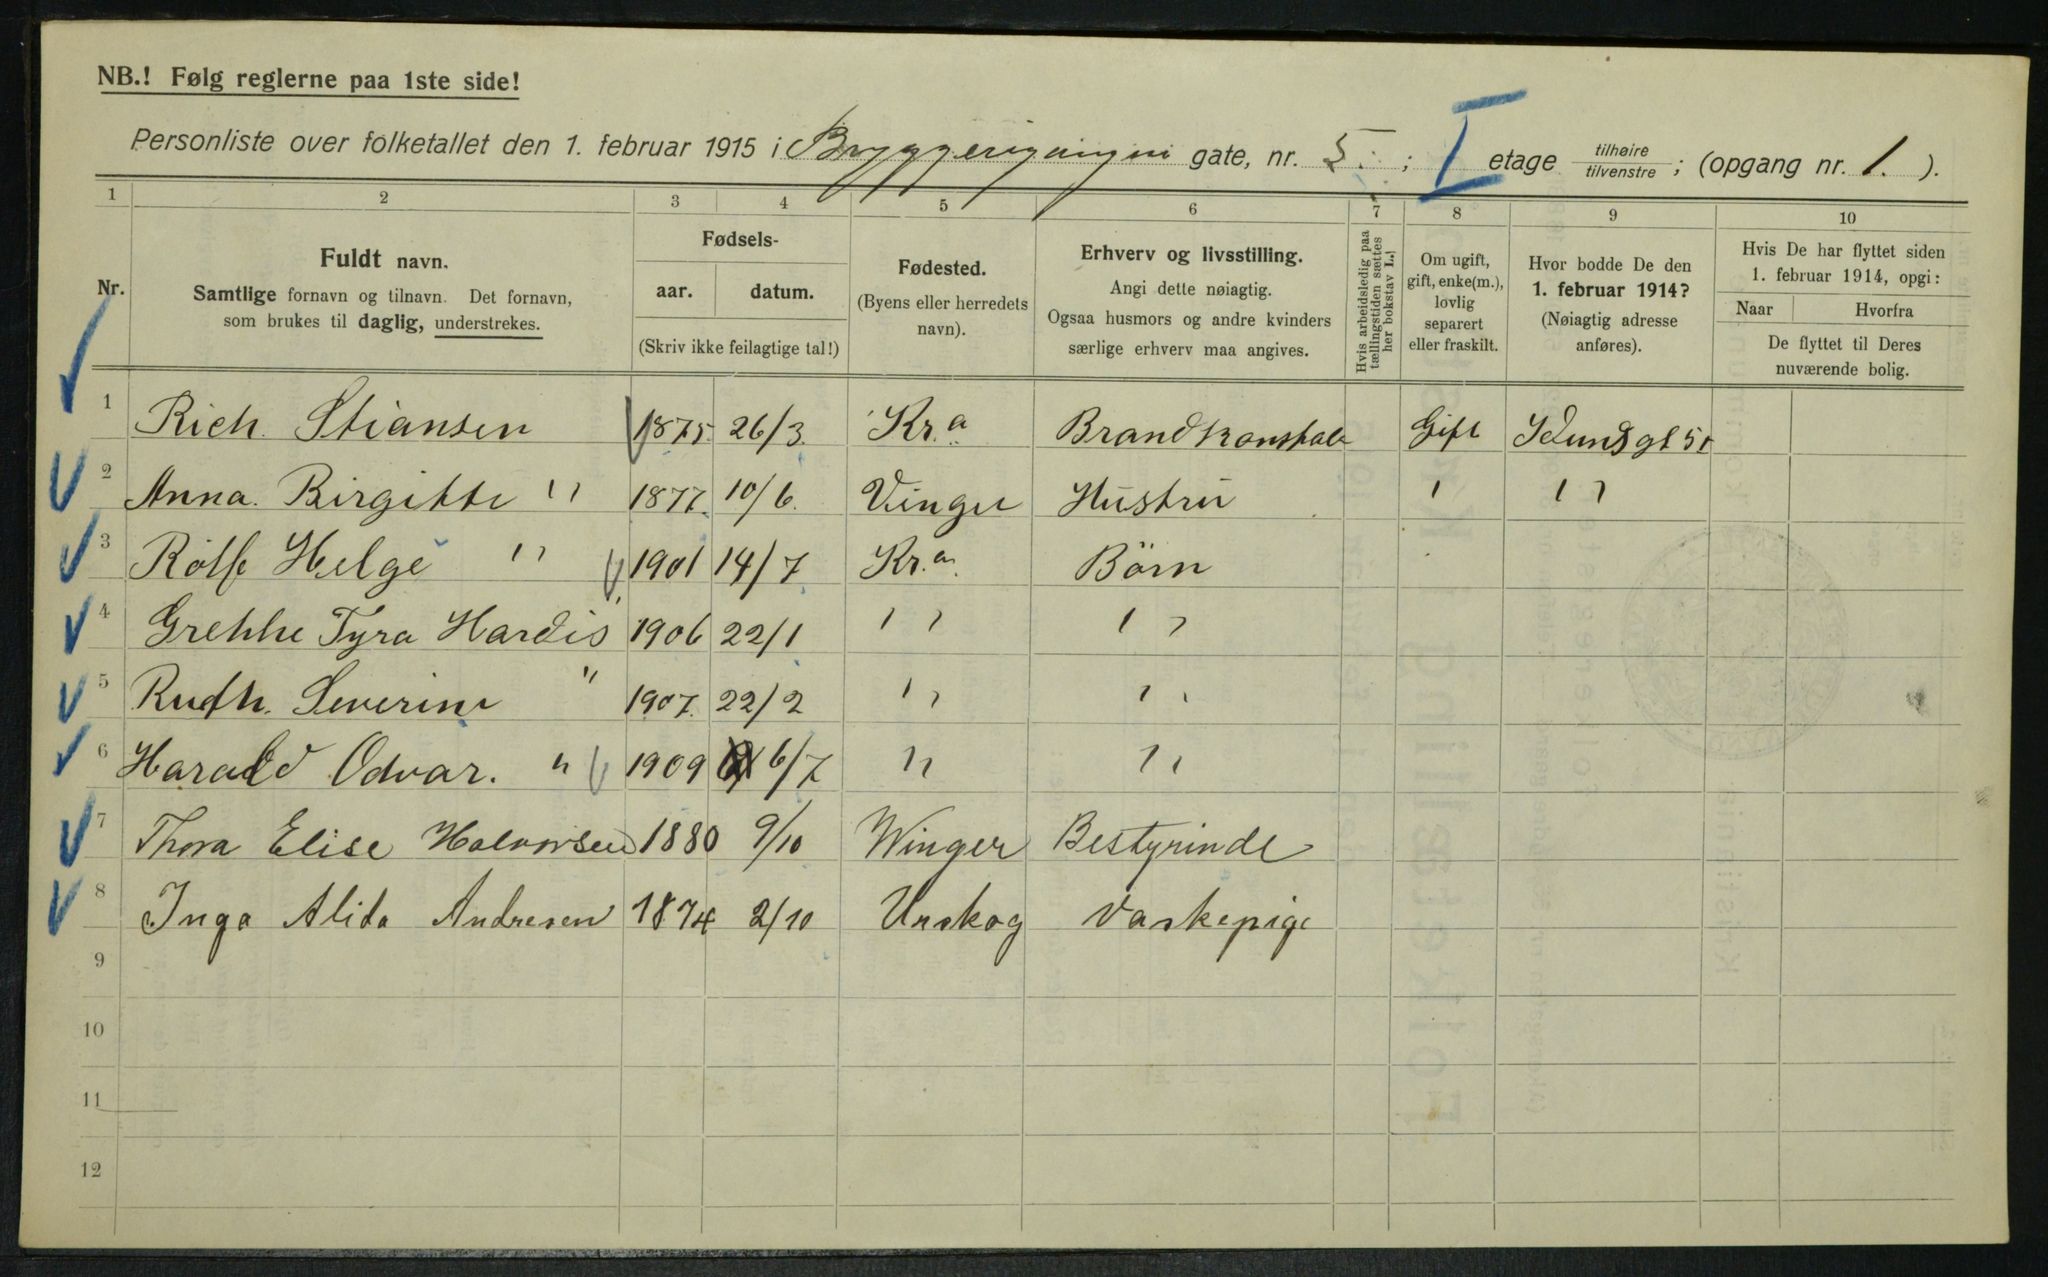 NB.! Følg reglerne paa 1ste side!
Personliste over folketallet den 1. februar 1915 i Bryggerigangen gate, nr. 5. ; I etage tilhøire/tilvenstre ; (opgang nr. 1. ).
1 2 3 4 5 6 7 8 9 10
Nr.
Fuldt navn.
Samtlige fornavn og tilnavn. Det fornavn,
som brukes til daglig, understrekes.
Fødsels-
aar. datum.
(Skriv ikke feilagtige tal!)
Fødested.
(Byens eller herredets
navn).
Erhverv og livsstilling.
Angi dette nøiagtig.
Ogsaa husmors og andre kvinders
særlige erhverv maa angives.
Hvis arbeidsledig paa
tællingstiden sættes
her bokstav L.)
Om ugift,
gift, enke(m.),
lovlig
separert
eller fraskilt.
Hvor bodde De den
1. februar 1914?
(Nøiagtig adresse
anføres).
Hvis De har flyttet siden
1. februar 1914, opgi:
Naar Hvorfra
De flyttet til Deres
nuværende bolig.
1 Rich. Stiansen 1875. 26/3. Kr.a Brandkonstabl Gift Idunsgt 5
2 Anna. Birgitte " 1877. 10/6. Vinger Hustru " "
3 Rolf Helge " 1901 14/7 Kr.a. Börn
4 Grethe Tyra Hardis " 1906 22/1 " "
5 Ruth. Severine " 1907. 22/2 " "
6 Harald Odvar. " 1909 6/7 " "
7 Thora Elise Halvorsen 1880 9/10 Winger Bestyrinde
8 Inga Alida Andresen 1874 2/10 Urskog Vaskepige
9
10
11
12